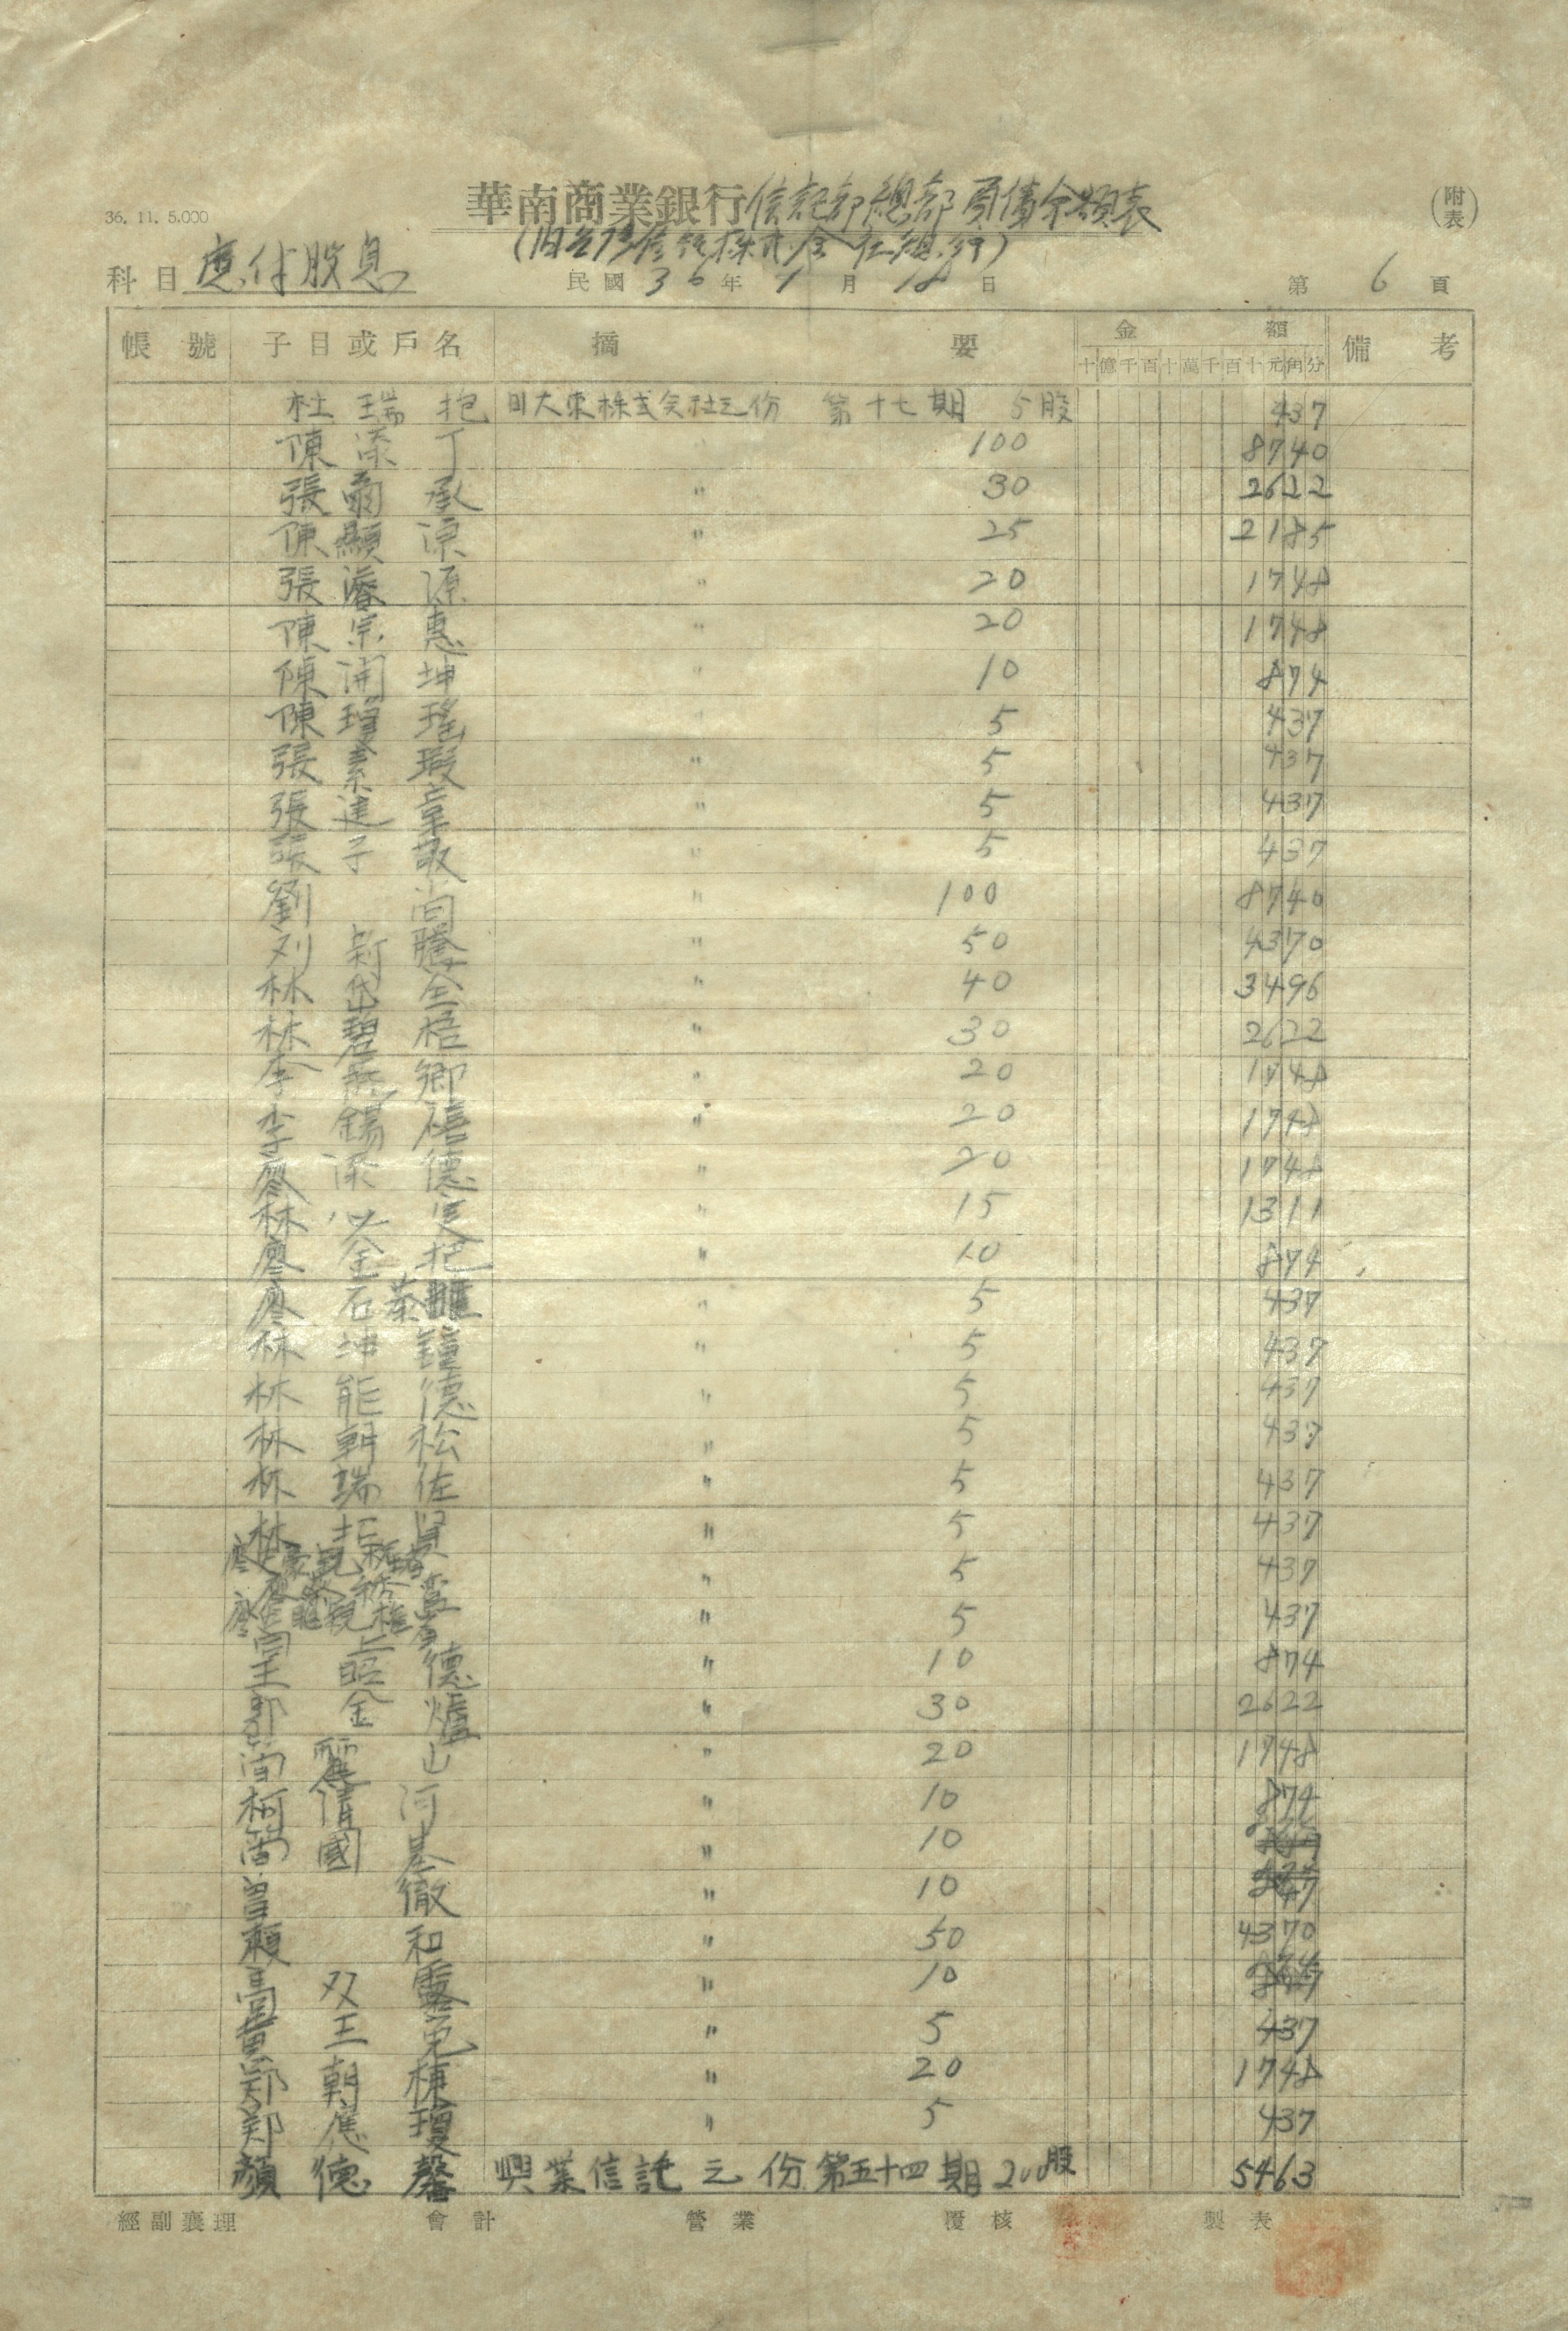 36. 11. 5.000
華南商業銀行信託部總部負債余額表
(附表)
科目 應付股息
民國 36 年 月 18 日 第 6 頁
帳號 子目或戶名 摘要 金額 備考
十億千百十萬千百十元角分
杜瑞抱 旧大東株式会社之份 第十七期 5股 437
陳添丁 〃 100 8740
張爾承 〃 30 2622
陳顯 〃 25 2185
張濬源 〃 20 1748
陳宗惠 〃 20 1748
陳開坤 〃 10 874
陳瓊瑤 〃 5 437
張素瑕 〃 5 437
張達章 〃 5 437
張子敬 〃 5 437
劉尚 〃 100 8740
刘新騰 〃 50 4370
林岱全 〃 40 3496
林碧梧 〃 30 2622
李卿 〃 20 1748
李錫禧 〃 20 1748
廖添德 〃 20 1748
林火 〃 15 1311
廖金把 〃 10 874
廖石 〃 5 437
林坤鐘 〃 5 437
林能德 〃 5 437
林朝松 〃 5 437
林瑞佐 〃 5 437
林 〃 5 437
〃 5 437
〃 5 437
王昭德 〃 10 874
郭金爐 〃 30 2622
山 〃 20 1748
柯清河 〃 10 874
國基 〃 10
曾徹 〃 10
賴和 〃 50 4370
高双露 〃 10
黃王兎 〃 5 437
郑朝棟 〃 20 1748
郑應瓊 〃 5 437
顏德馨 興業信託之份第五十四期 200股 5463
經副襄理 會計 營業 覆核 製表